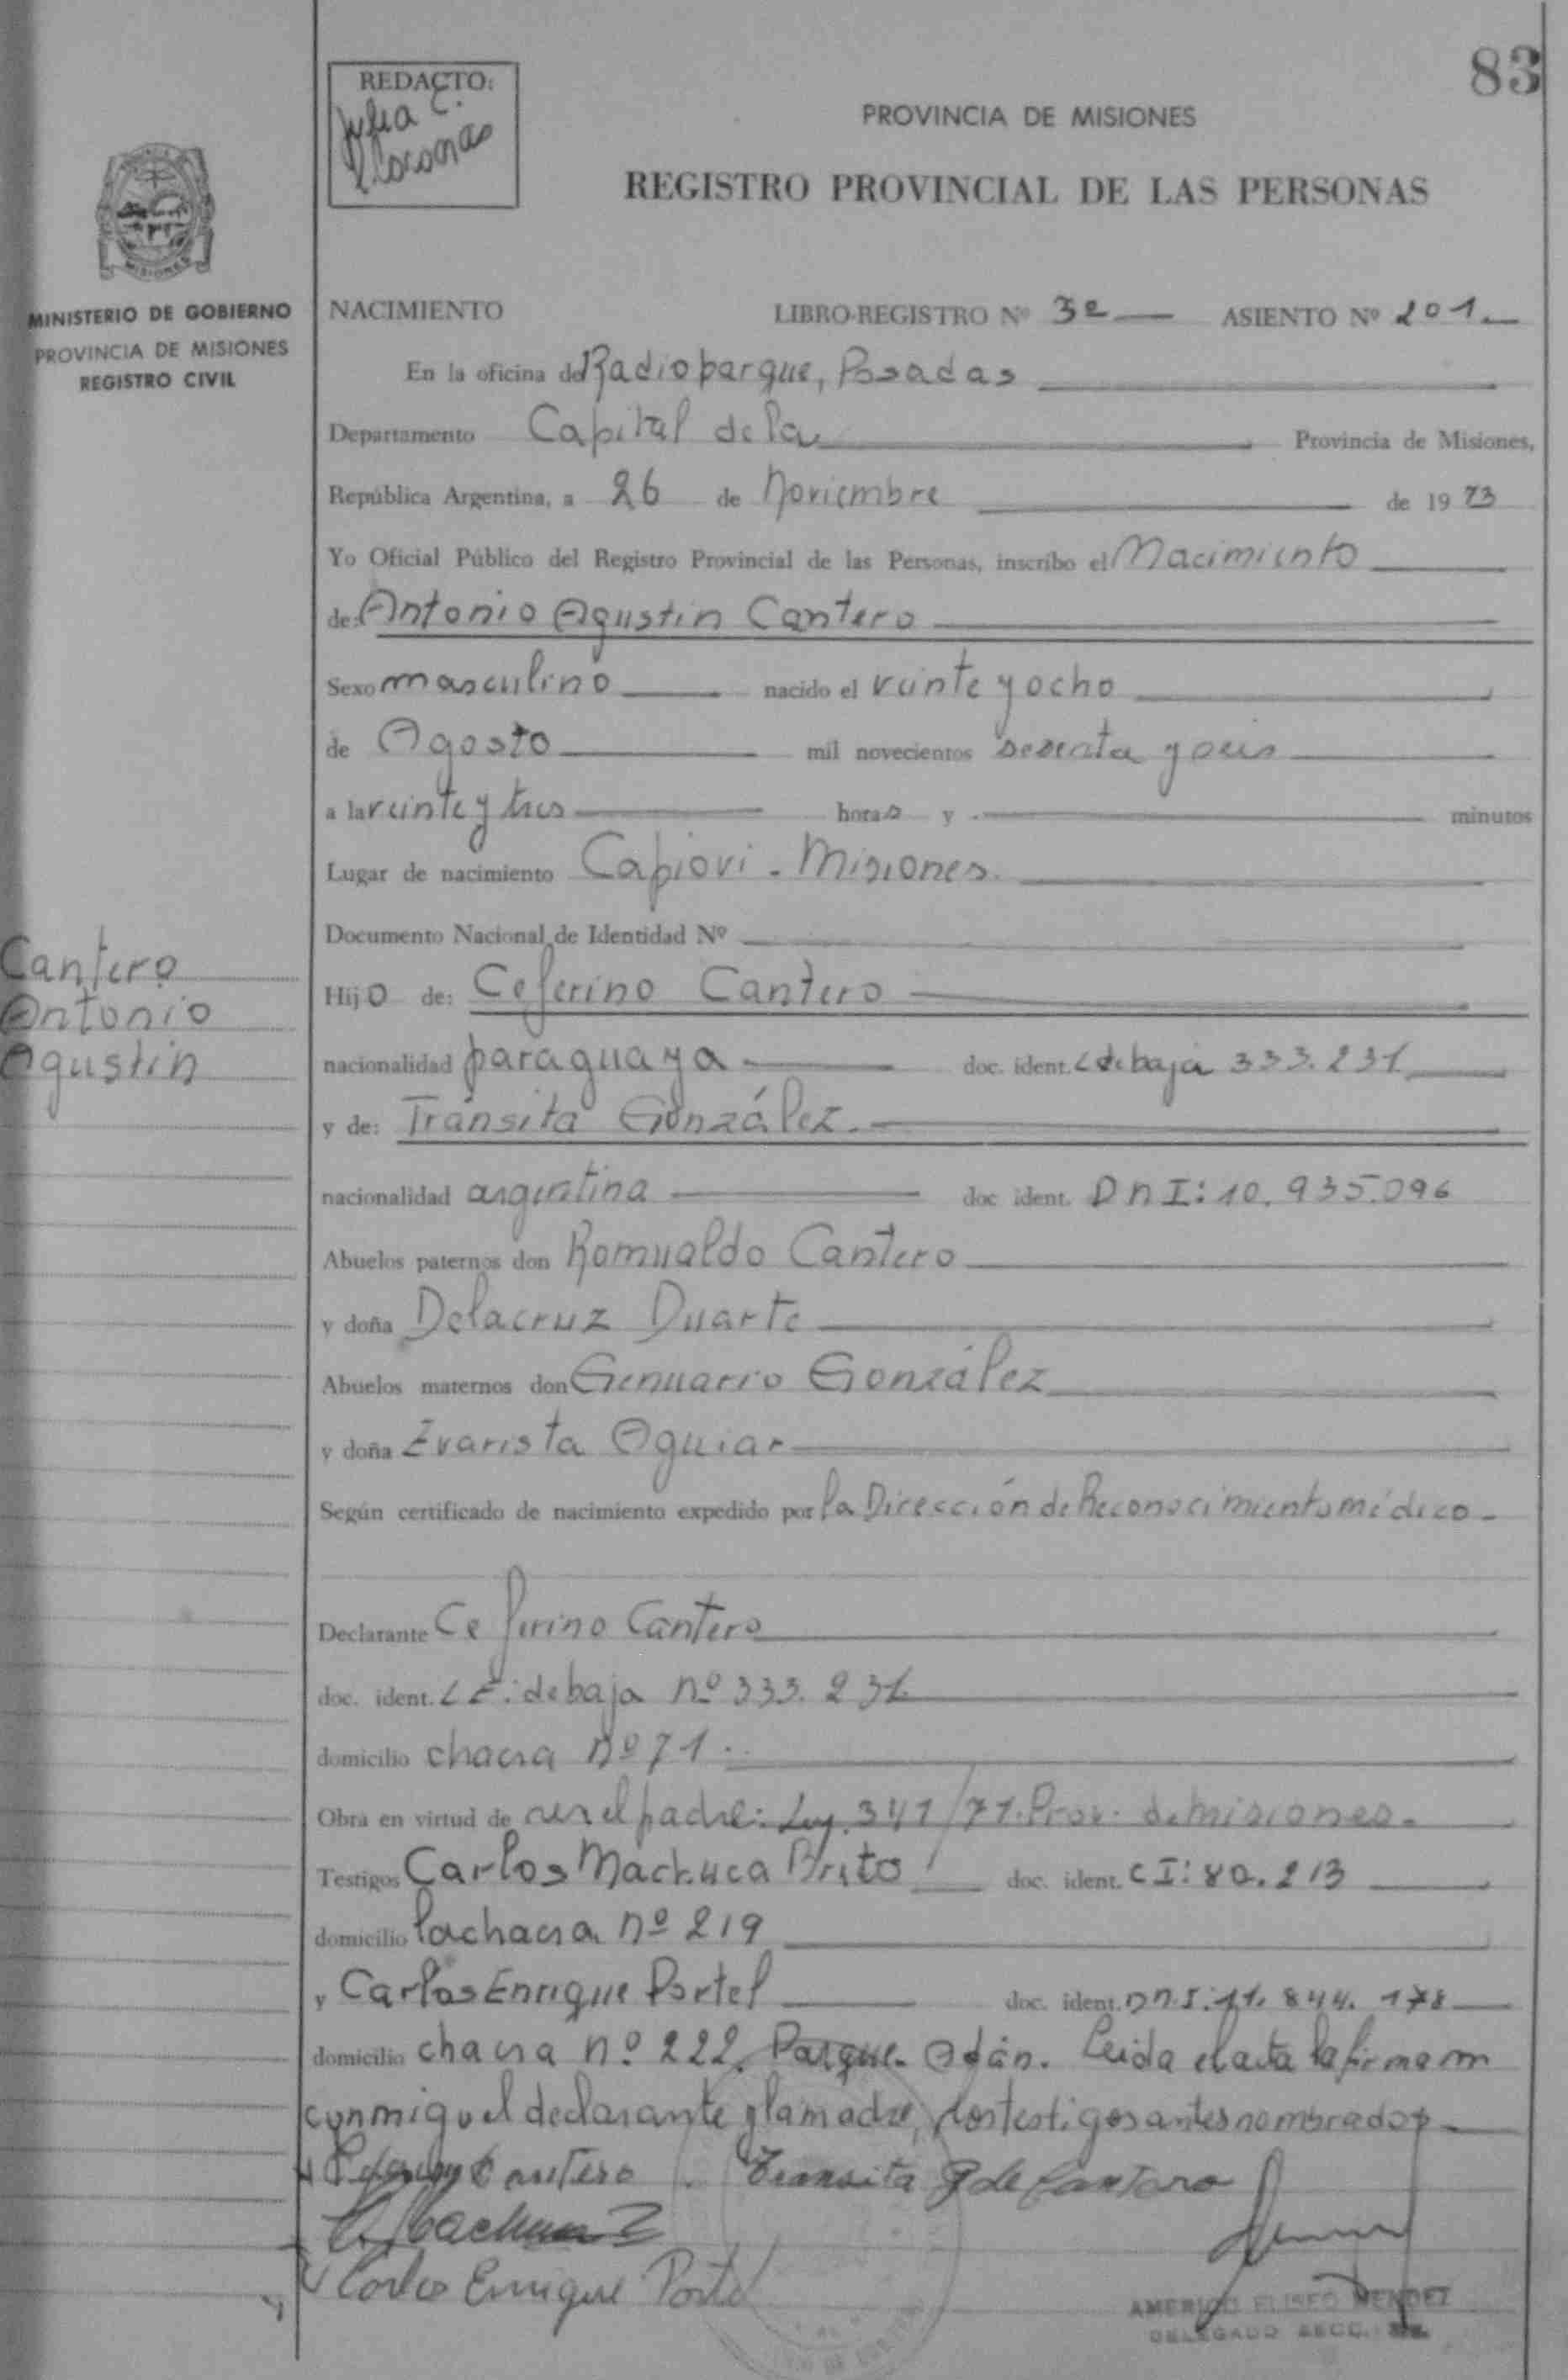 83
REDACTO:
Julia E.
Coronas
PROVINCIA DE MISIONES
REGISTRO PROVINCIAL DE LAS PERSONAS
MISIONES
MINISTERIO DE GOBIERNO
PROVINCIA DE MISIONES
REGISTRO CIVIL
NACIMIENTO LIBRO-REGISTRO Nº 3º ASIENTO Nº 201
En la oficina de Radioparque, Posadas
Departamento Capital de la Provincia de Misiones,
República Argentina, a 26 de Noviembre de 1973
Yo Oficial Público del Registro Provincial de las Personas, inscribo el Nacimiento
de: Antonio Agustin Cantero
Sexo masculino nacido el veinte y ocho
de Agosto mil novecientos sesenta y seis
a la veinte y tres horas y minutos
Lugar de nacimiento Capiovi - Misiones.
Documento Nacional de Identidad Nº
Cantero
Antonio
Agustin
Hijo de: Ceferino Cantero
nacionalidad paraguaya doc. ident. de baja 333.231
y de: Tránsita González.
nacionalidad argentina doc. ident. DNI: 10.935.096
Abuelos paternos don Romualdo Cantero
y doña Delacruz Duarte
Abuelos maternos don Genuario González
y doña Evarista Aguiar
Según certificado de nacimiento expedido por la Dirección de Reconocimiento médico -
Declarante Ceferino Cantero
doc. ident. L E: de baja Nº 333.231
domicilio chacra Nº 71
Obra en virtud de ser el padre: Ley. 341/71. Prov. de Misiones.
Testigos Carlos Machuca Brito doc. ident. C I: 80.213
domicilio la chacra Nº 219
y Carlos Enrique Portel doc. ident. DNI: 11.844.178
domicilio chacra Nº 222. Parque Adán. Leida el acta la firman
conmigo el declarante y la madre, los testigos antes nombrados
Ceferino Cantero Transita G de Cantero
C. Machuca
Carlos Enrique Portel
AMERICO ELISEO MENDEZ
DELEGADO SECC.